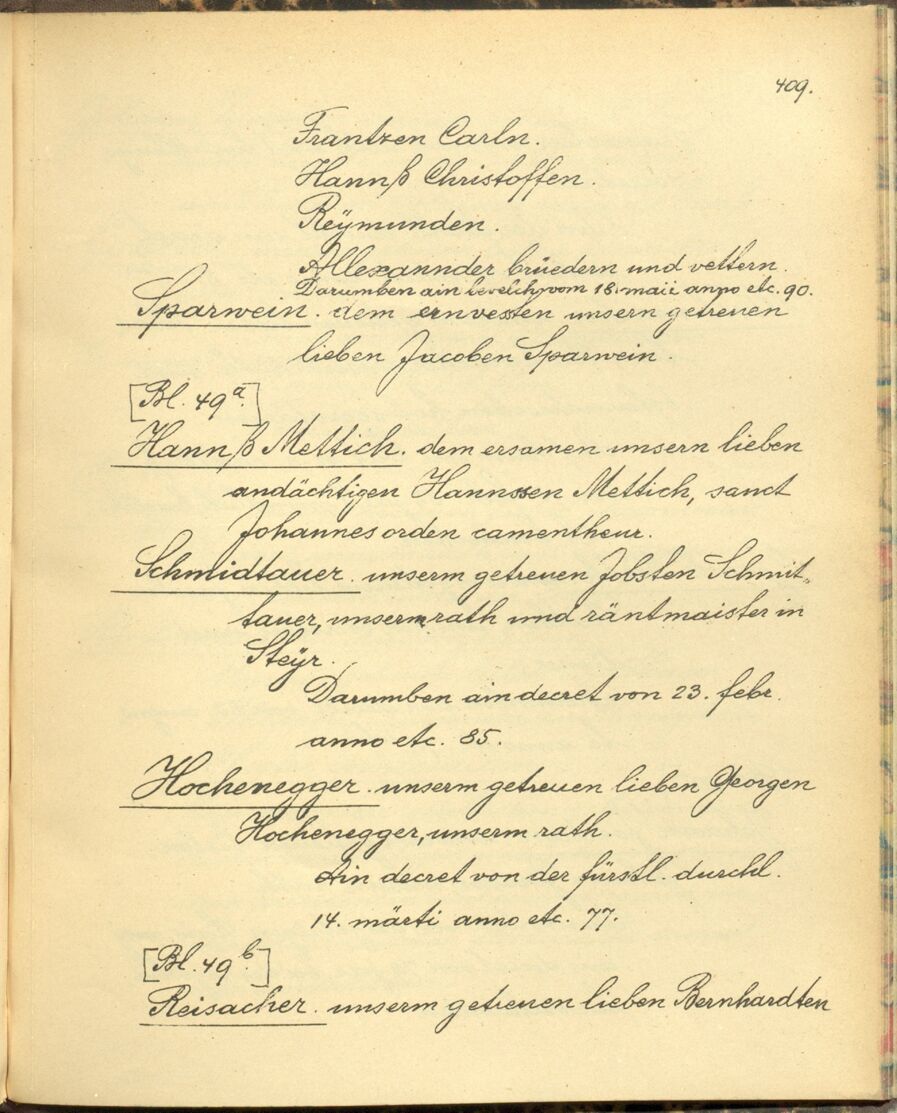 409.
Frantzen Carln.
Hannß Christoffen.
Reÿmunden.
Allexannder brüedern und vettern.
Darumben ain bevelch vom 18. maii anno etc. 90.
Sparwein. dem ernvessten unsern getreuen
lieben Jacoben Sparwein.
[Bl. 49a.]
Hannß Mettich. dem ersamen unsern lieben
andächtigen Hannssen Mettich, sanct
Johannes orden camentheur.
Schmidtauer. unserm getreuen Jobsten Schmit„
tauer, unserm rath und räntmaister in
Steÿr.
Darumben ain decret von 23. febr.
anno etc. 85.
Hochenegger. unserm getreuen lieben Georgen
Hochenegger, unserm rath.
Ain decret von der fürstl. durchl.
14. märti anno etc. 77.
[Bl. 49b.]
Reisacher. unserm getreuen lieben Bernhardten